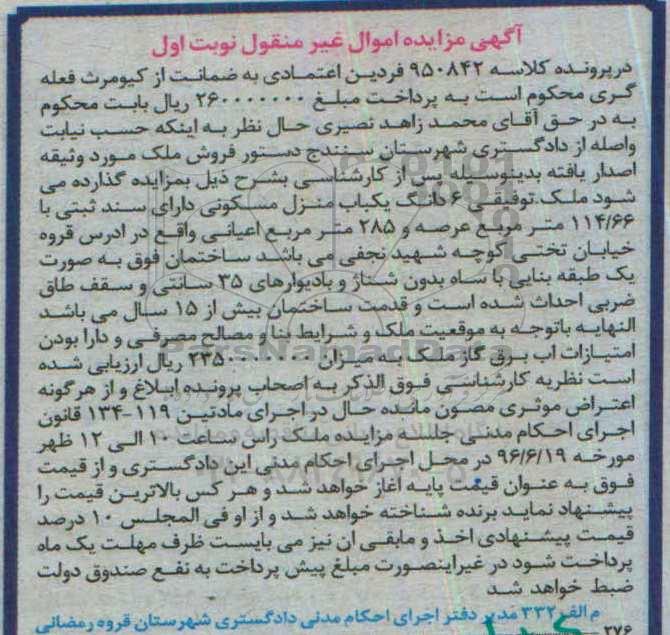 آگهی مزایده اموال غیر منقول نوبت اول
درپرونده کلاسه ۹۵۰۸۴۲ فردین اعتمادی به ضمانت از کیومرث فعله
گری محکوم است به پرداخت مبلغ ۲۶۰۰۰۰۰۰۰ ریال بابت محکوم
به در حق آقای محمد زاهد نصیری حال نظر به اینکه حسب نیابت
واصله از دادگستری شهرستان سنندج دستور فروش ملک مورد وثیقه
اصدار یافته بدینوسیله پس از کارشناسی بشرح ذیل بمزایده گذارده می
شود ملک توقیفی ۶ دانگ یکباب منزل مسکونی دارای سند ثبتی با
۱۱۴/۶۶ متر مربع عرصه و ۲۸۵ متر مربع اعیانی واقع در ادرس قروه
خیابان تختی کوچه شهید نجفی می باشد ساختمان فوق به صورت
یک طبقه بنایی با ساه بدون شناژ و بادیوارهای ۳۵ سانتی و سقف طاق
ضربی احداث شده است و قدمت ساختمان بیش از ۱۵ سال می باشد
النهایه باتوجه به موقعیت ملک و شرایط بنا و مصالح مصرفی و دارا بودن
امتیازات اب برق گاز ملک به میزان ریال ارزیابی شده
است نظریه کارشناسی فوق الذکر به اصحاب پرونده ابلاغ و از هرگونه
اعتراض موثری مصون مانده حال در اجرای مادتین ۱۱۹-۱۳۴ قانون
اجرای احکام مدنی جلسه مزایده ملک راس ساعت ۱۰ الی ۱۲ ظهر
مورخه ۹۶/۶/۱۹ در محل اجرای احکام مدنی این دادگستری و از قیمت
فوق به عنوان قیمت پایه آغاز خواهد شد و هر کس بالاترین قیمت را
پیشنهاد نماید برنده شناخته خواهد شد و از او فی المجلس ۱۰ درصد
قیمت پیشنهادی اخذ و مابقی ان نیز می بایست ظرف مهلت یک ماه
پرداخت شود در غیراینصورت مبلغ پیش پرداخت به نفع صندوق دولت
ضبط خواهد شد
م الف ۳۳۲ مدیر دفتر اجرای احکام مدنی دادگستری شهرستان قروه رمضانی
۲۷۶